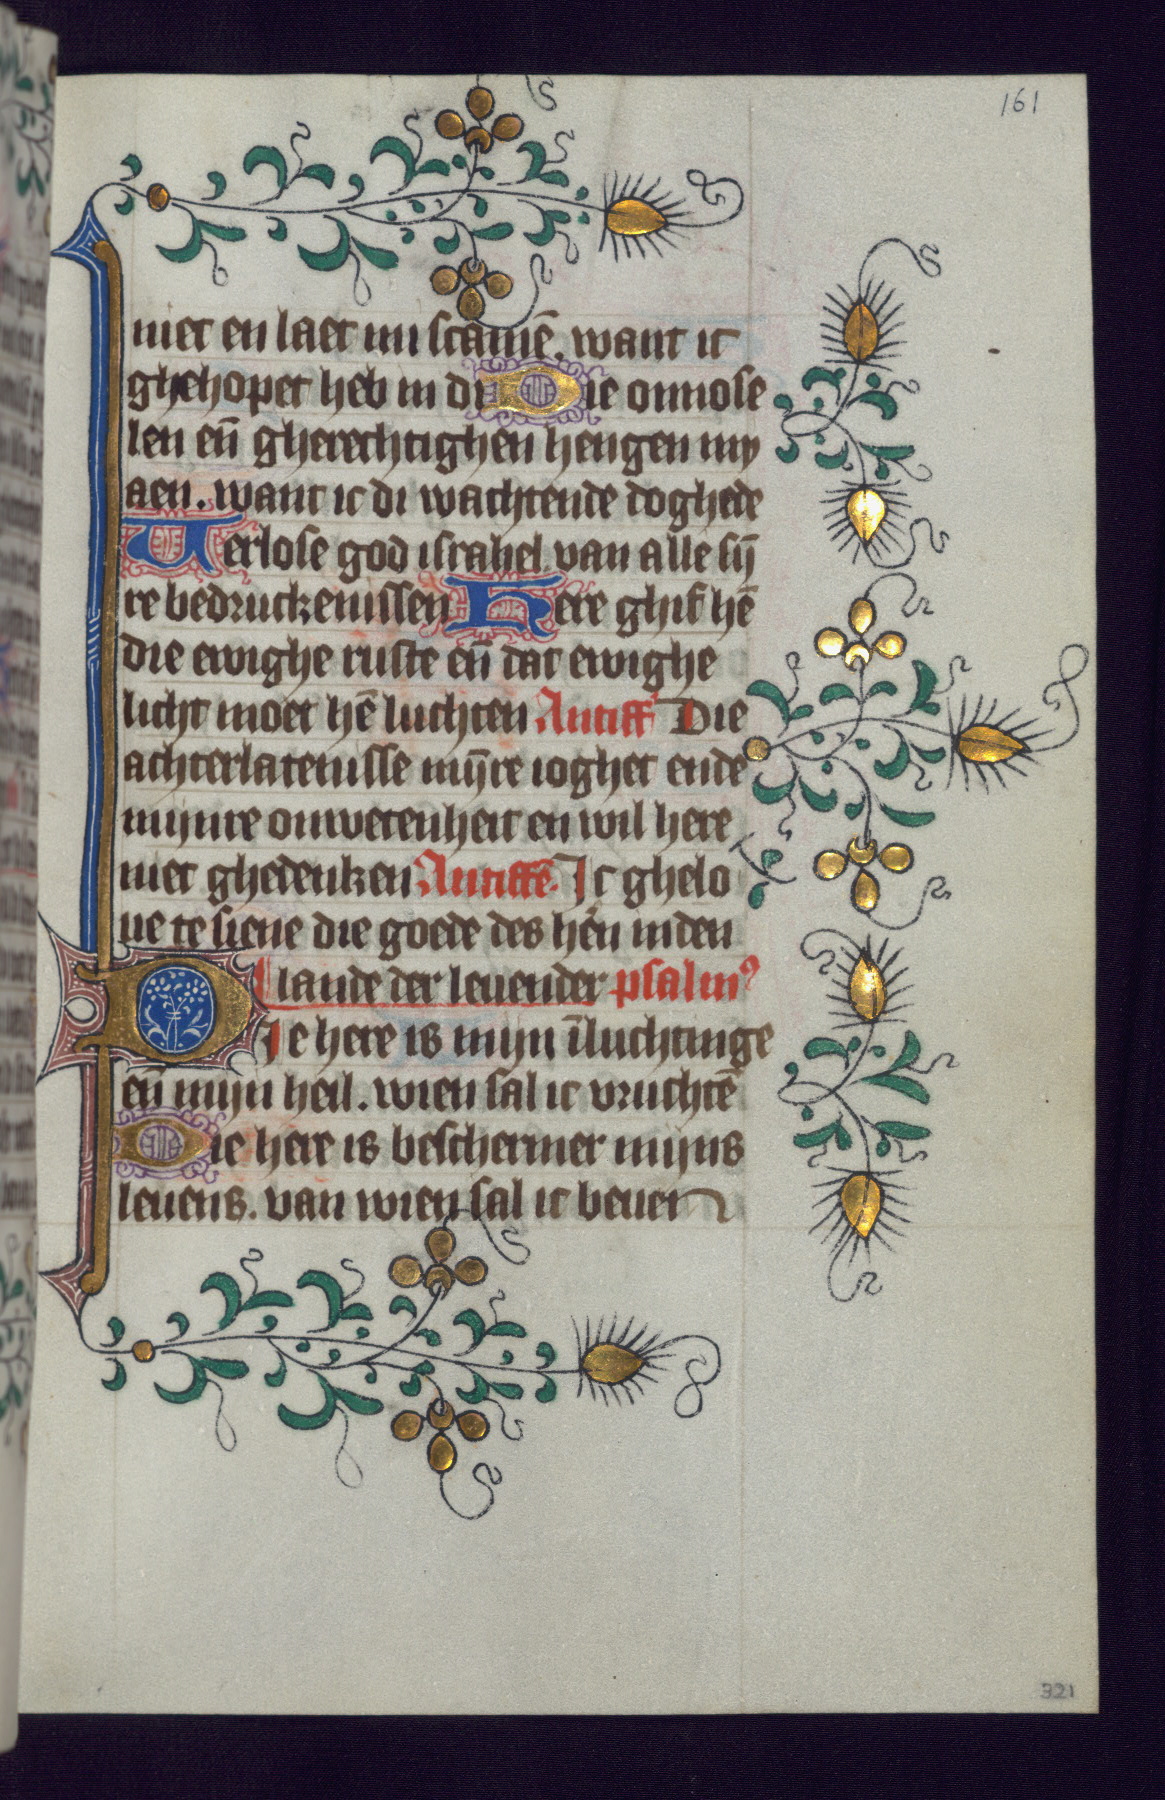 161
niet en laet mi scamē. want ic
ghehopet heb in di Die onnose
len eñ gherechtighen hengen my
aen. want ic di wachtende doghede
Verlose god israhel van alle sij̄
re bedruckenissen Here ghif hē
die ewighe ruste eñ dat ewighe
licht moet hē luchten Antiff Die
achterlatenisse mijre ioghet ende
mijnre onwetenheit en wil here
niet ghedenken Antiffē. Ic ghelo
ue te siene die goede des hēn inden
lande der leuender psalmꝰ
Die here is mijn īluchtinge
eñ mijn heil. wien sal ic vruchtē
Die here is beschermer mijns
leuens. van wien sal ic beuen
321